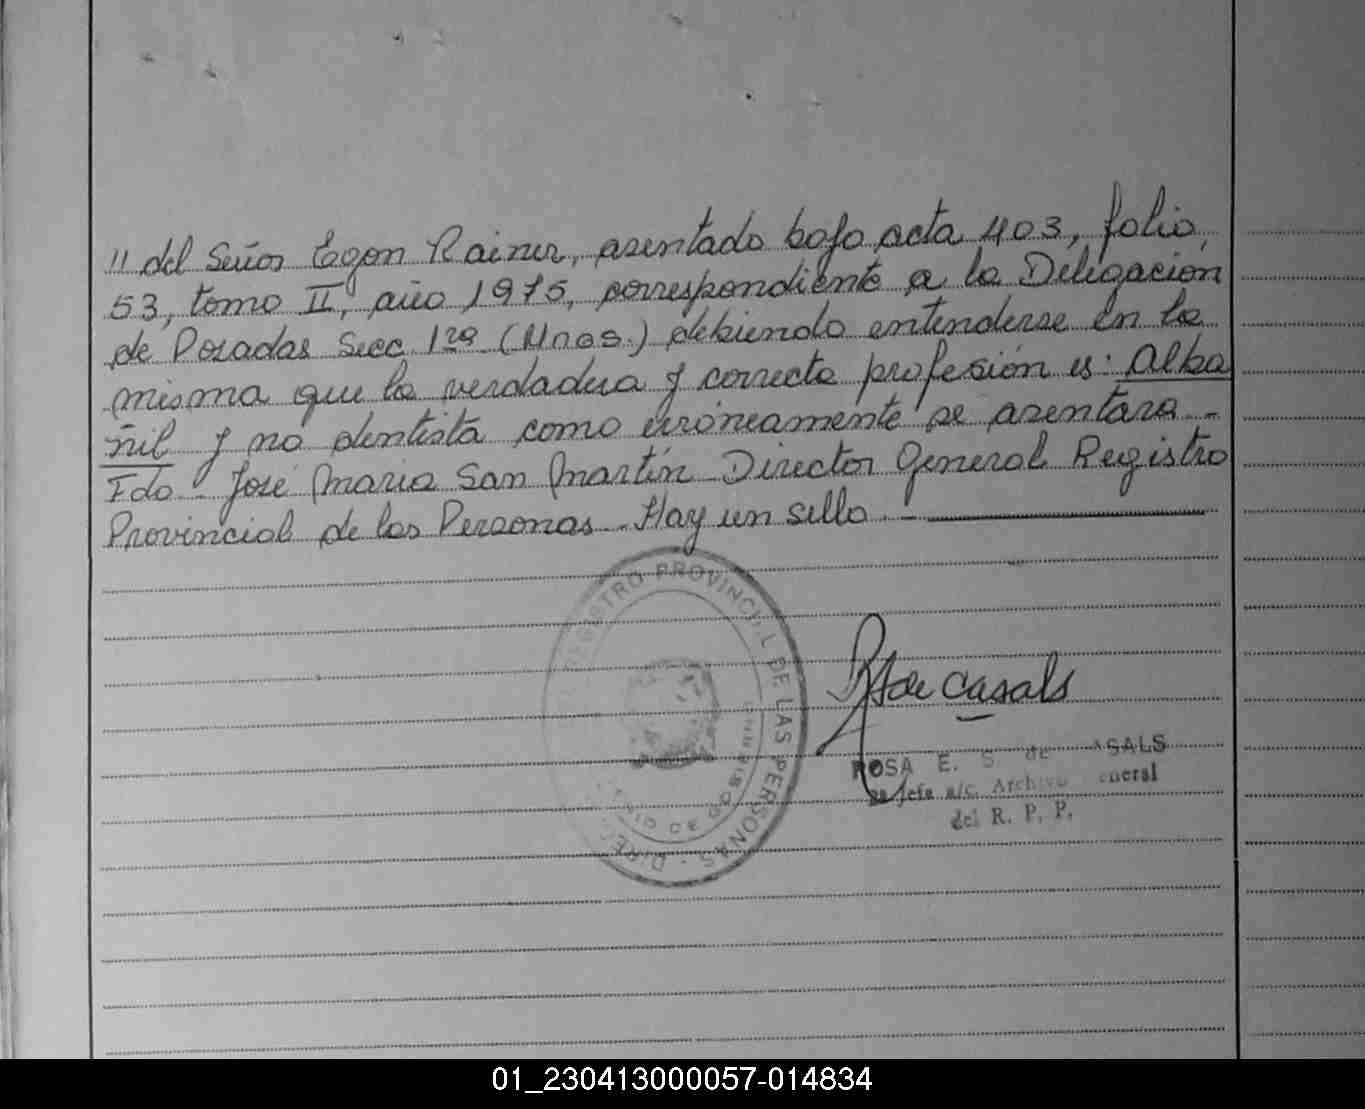 " del Señor Egon Rainer, asentado bajo acta 403, folio,
53, tomo II, año 1975, correspondiente a la Delegación
de Posadas Secc. 1ra (Mnes.) debiendo entenderse en la
misma que la verdadera y correcta profesión es: Alba
ñil y no dentista como erróneamente se asentara.-
Fdo. José Maria San Martín Director General Registro
Provincial de las Personas. Hay un sello.-
REGISTRO PROVINCIAL DE LAS PERSONAS
de Casals
ROSA E. S de CASALS
Jefe a/c. Archivo General
del R. P. P.
01_230413000057-014834